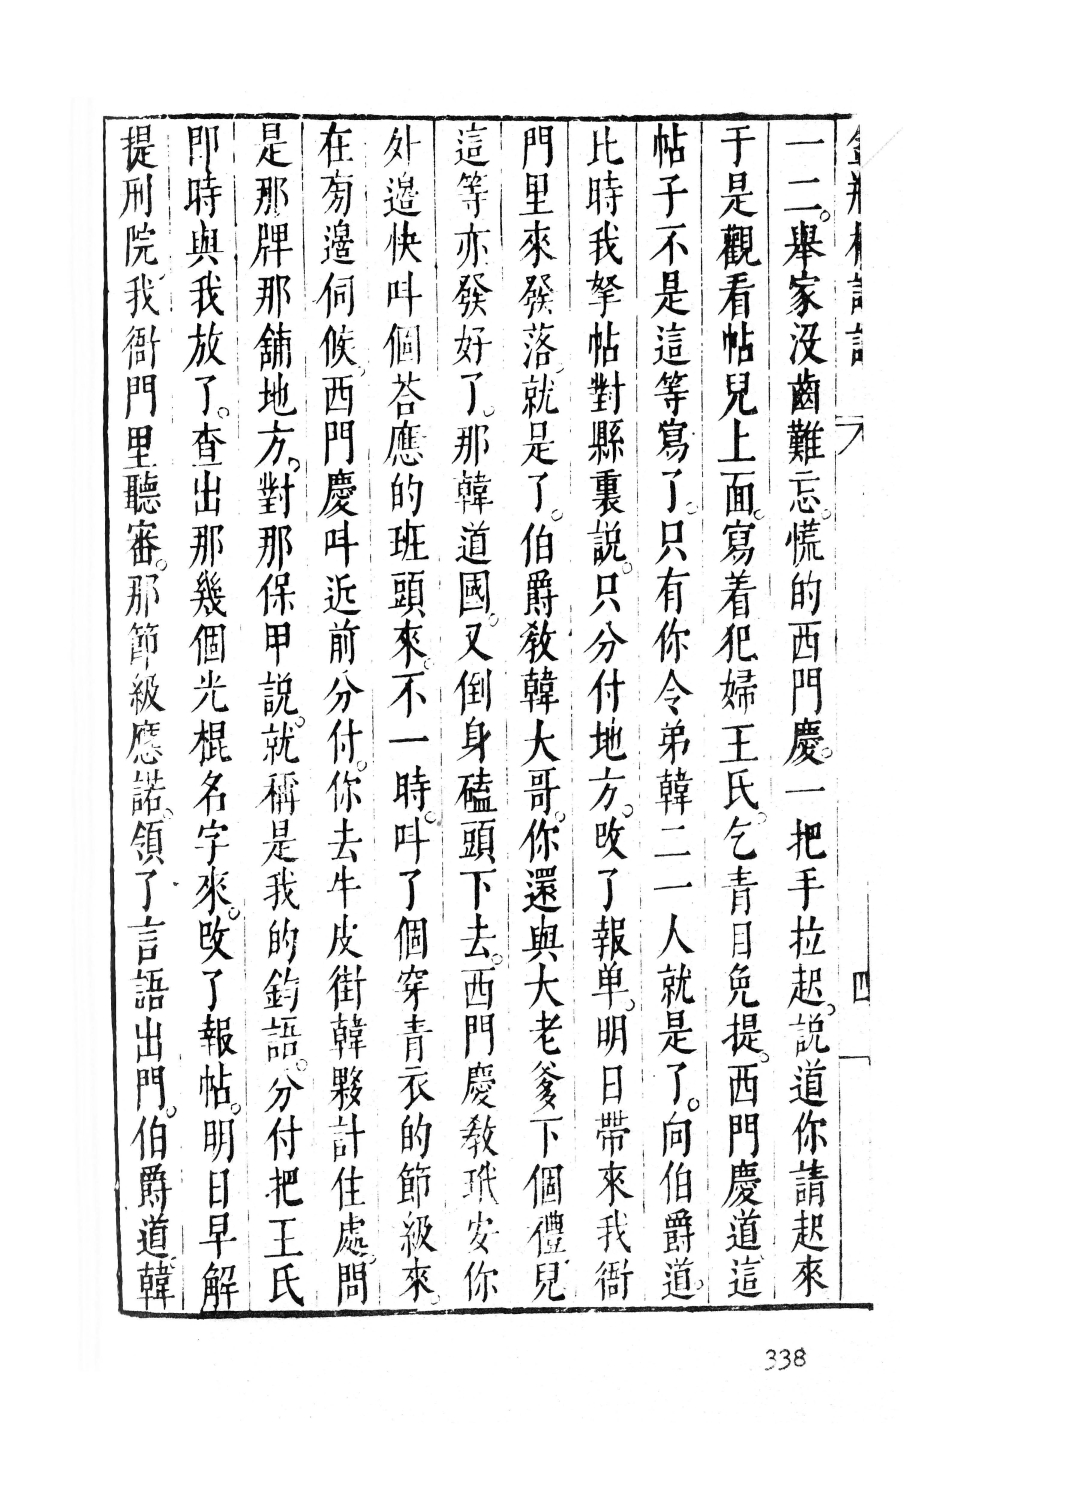 金瓶梅詞話
四
一二。舉家没齒難忘。慌的西門慶。一把手拉起。説道你請起來
于是觀看帖兒上面。寫着犯婦王氏。乞青目免提。西門慶道。這
帖子不是這等寫了。只有你令弟韓二一人就是了。向伯爵道。
比時我拏帖對縣裏説。只分付地方。改了報单。明日帶來我衙
門里來發落。就是了。伯爵教韓大哥。你還與大老爹下個禮兒
這等亦發好了。那韓道國。又倒身磕頭下去。西門慶教玳安你
外邉快呌個荅應的班頭來。不一時。呌了個穿青衣的節級來。
在旁邉伺候。西門慶呌近前分付。你去牛皮街韓夥計住處。問
是那牌那舖地方。對那保甲説。就稱是我的鈞語。分付把王氏
即時與我放了。查出那幾個光棍名字來。改了報帖。明日早解
提刑院。我衙門里聽審。那節級應諾。領了言語出門。伯爵道。韓
338